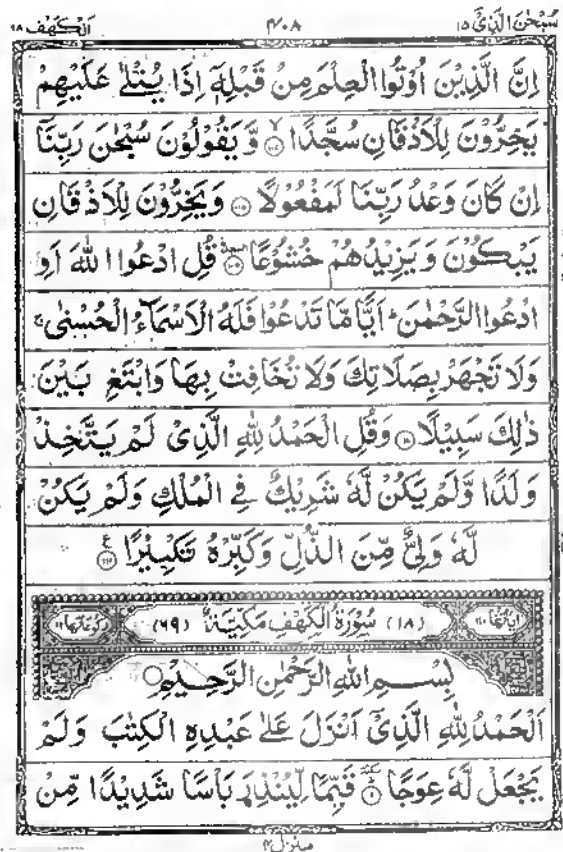 سُبْحٰنَ الَّذِیْٓ ۱۵ ۴۰۸ اَلْكَهْف ۱۸
اِنَّ الَّذِیْنَ اُوْتُوا الْعِلْمَ مِنْ قَبْلِهٖۤ اِذَا یُتْلٰى عَلَیْهِمْ
یَخِرُّوْنَ لِلْاَذْقَانِ سُجَّدًا ۙ﴿۱۰۷﴾ وَّیَقُوْلُوْنَ سُبْحٰنَ رَبِّنَاۤ
اِنْ كَانَ وَعْدُ رَبِّنَا لَمَفْعُوْلًا ﴿۱۰۸﴾ وَیَخِرُّوْنَ لِلْاَذْقَانِ
یَبْكُوْنَ وَیَزِیْدُهُمْ خُشُوْعًا ﴿۱۰۹﴾ قُلِ ادْعُوا اللّٰهَ اَوِ
ادْعُوا الرَّحْمٰنَ ؕ اَیًّا مَّا تَدْعُوْا فَلَهُ الْاَسْمَآءُ الْحُسْنٰى ۚ
وَلَا تَجْهَرْ بِصَلَاتِكَ وَلَا تُخَافِتْ بِهَا وَابْتَغِ بَیْنَ
ذٰلِكَ سَبِیْلًا ﴿۱۱۰﴾ وَقُلِ الْحَمْدُ لِلّٰهِ الَّذِیْ لَمْ یَتَّخِذْ
وَلَدًا وَّلَمْ یَكُنْ لَّهٗ شَرِیْكٌ فِی الْمُلْكِ وَلَمْ یَكُنْ
لَّهٗ وَلِیٌّ مِّنَ الذُّلِّ وَكَبِّرْهُ تَكْبِیْرًا ﴿۱۱۱﴾ ع
اٰیاتُهَا ۱۱۰ (۱۸) سُوْرَةُ الْكَهْفِ مَكِّیَّةٌ (۶۹) رُكُوْعَاتُهَا ۱۲
بِسْمِ اللّٰهِ الرَّحْمٰنِ الرَّحِیْمِ
اَلْحَمْدُ لِلّٰهِ الَّذِیْۤ اَنْزَلَ عَلٰى عَبْدِهِ الْكِتٰبَ وَلَمْ
یَجْعَلْ لَّهٗ عِوَجًا ﴿۱﴾ قَیِّمًا لِّیُنْذِرَ بَاْسًا شَدِیْدًا مِّنْ
منزل ۴